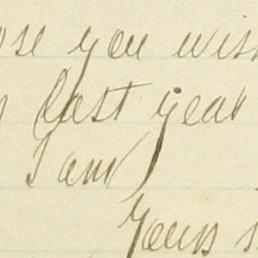 ose you wis
last year
I am
Yours s